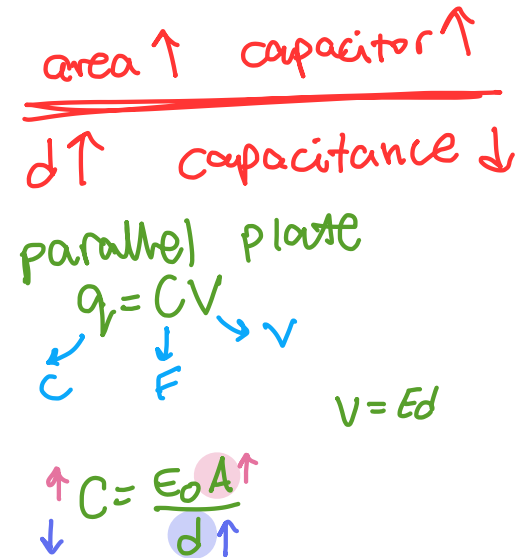 area ↑ capacitor ↑
d ↑ capacitance ↓
parallel plate
q = CV
C F V
V = Ed
↑ ↓ C = ε₀A ↑ / d ↑